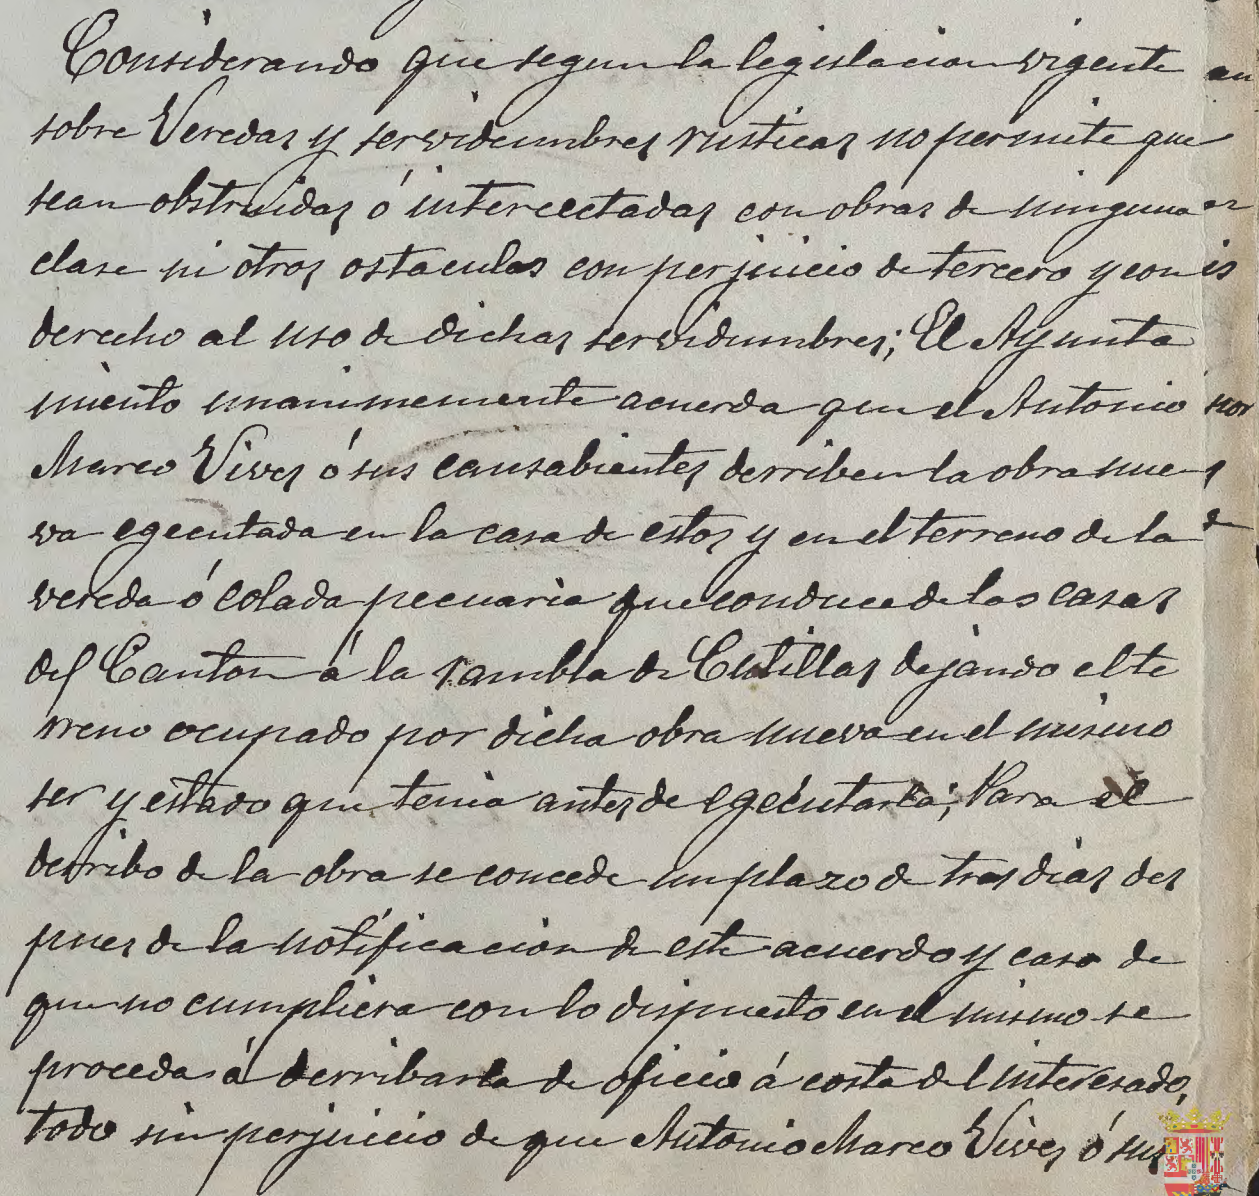 Considerando que segun la legislacion vigente
sobre Veredas y servidumbres rusticas no permite que
sean obstruidas ó intercectadas con obras de ninguna
clase ni otros ostaculos con perjuicio de tercero y con
derecho al uso de dichas servidumbres; El Ayunta
miento unanimemente acuerda que el Antonio
Marco Vives ó sus causabientes derriben la obra nue
va egecutada en la casa de estos y en el terreno de la
vereda ó colada pecuaria que conduce de las casas
del Canton á la rambla de Cutillas dejando el te
rreno ocupado por dicha obra nueva en el mismo
ser y estado que tenia antes de egecutarla; Para el
derribo de la obra se concede un plazo de tres dias des
pues de la notificacion de este acuerdo y caso de
que no cumpliera con lo dispuesto en el mismo se
proceda á derribarla de oficio á costa del interesado,
todo sin perjuicio de que Antonio Marco Vives ó sus